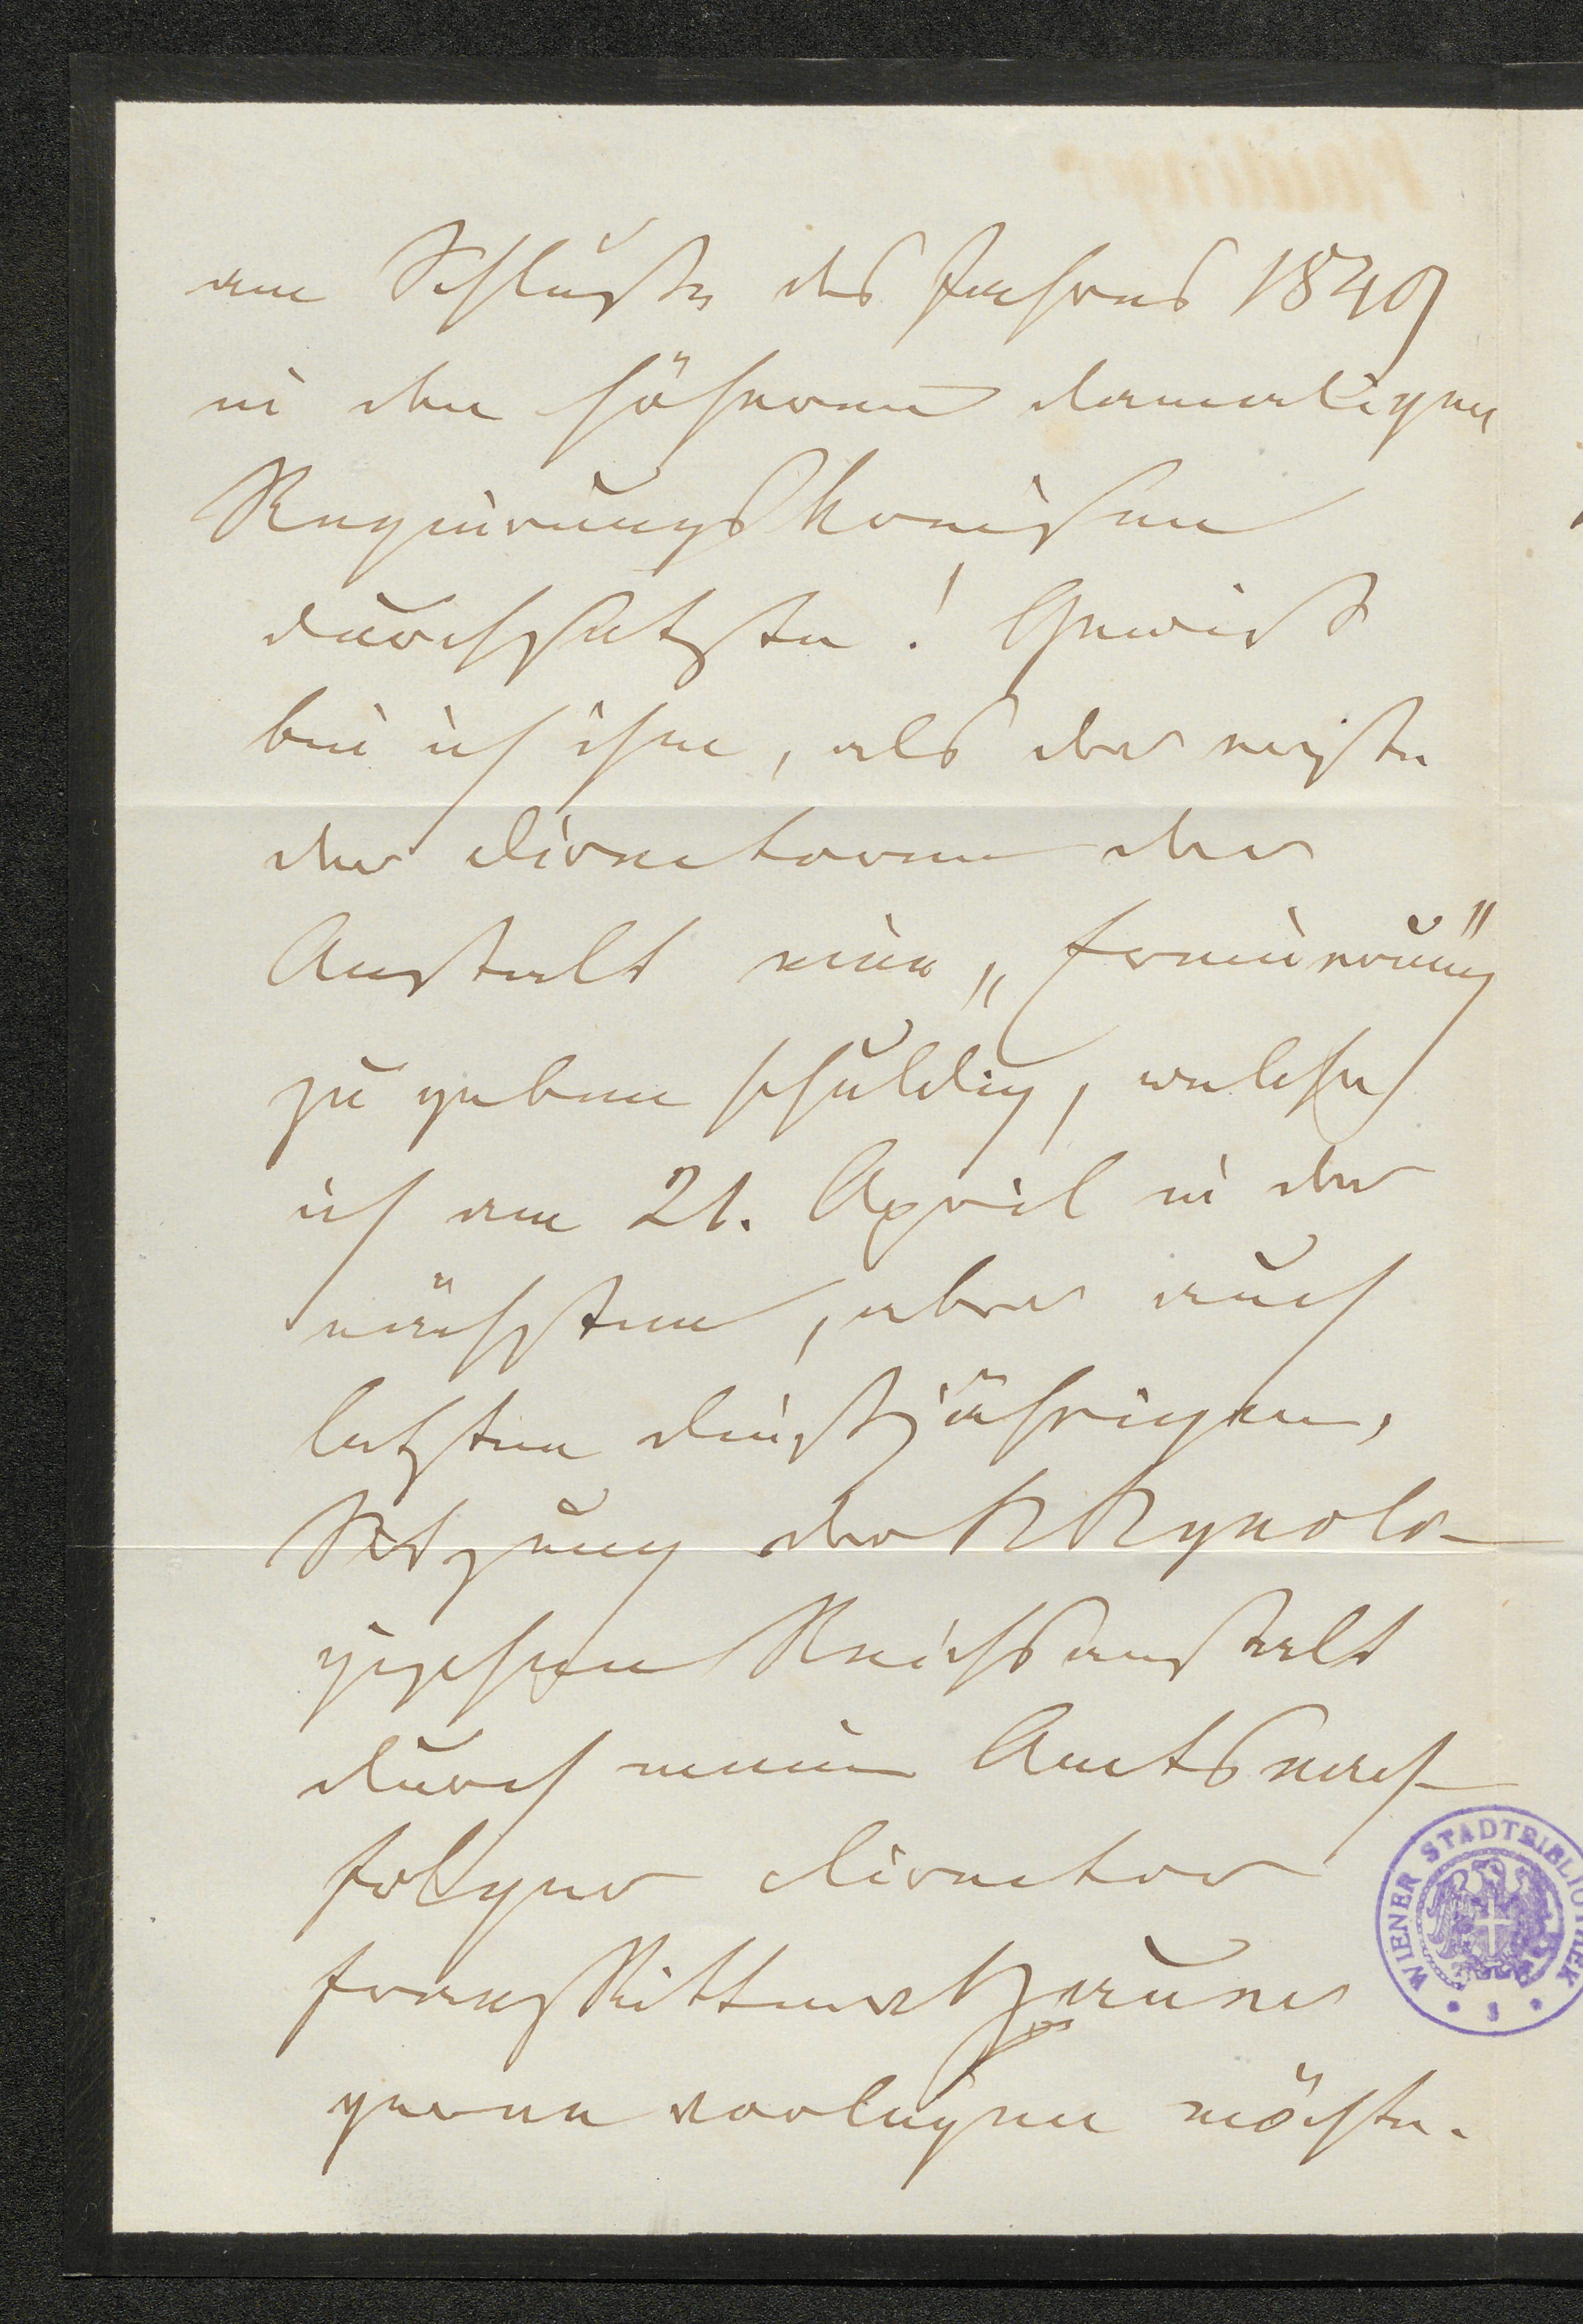 am Schluße des Jahres 1849
in den höheren damaligen
Regierungskreisen
durchsetzte! Gewiß
bin ich ihm, als der erste
der Directoren der
Anstalt eine „Erinnerung"
zu geben schuldig, welche
ich am 21. April in der
nächsten, aber auch
letzten diesjährigen,
Sitzung der k k geolo-
gischen Reichsanstalt
durch meinen Amtsnach-
folger Director
Franz Ritter v Hauer
gerne vorlegen möchte.
WIENER STADTBIBLIOTHEK